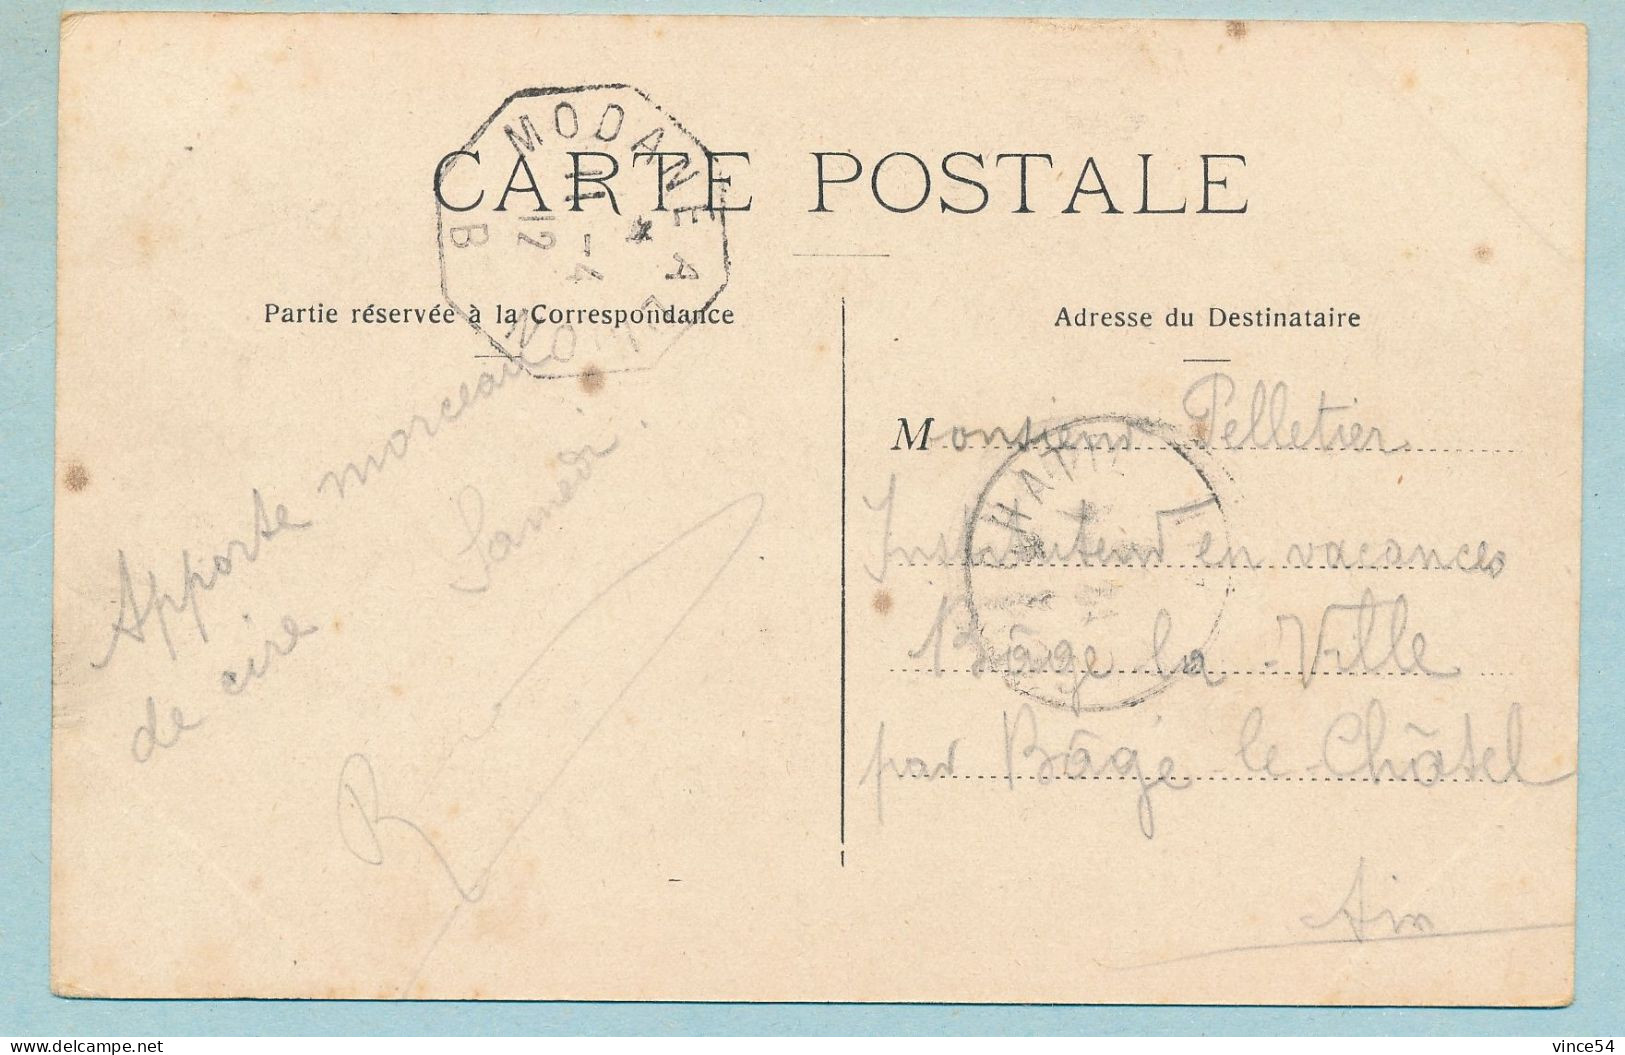 CARTE POSTALE
MODANE A MACON
B
11 -4
12
Partie réservée à la Correspondance
Apporte morceau
de cire Samedi.
Adresse du Destinataire
Monsieur Pelletier
Instituteur en vacances
Bâge la Ville
par Bâgé le Châtel
Ain
vince54